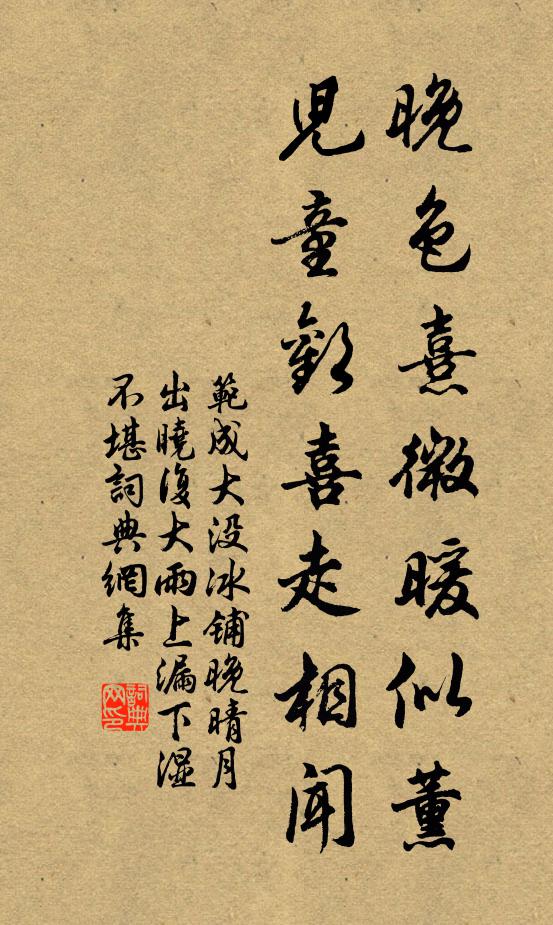 晚色熹微暖似薰
兒童歡喜走相聞
範成大没冰鋪晚晴月
出曉復大雨上漏下湿
不堪詞典網集
詞典网印